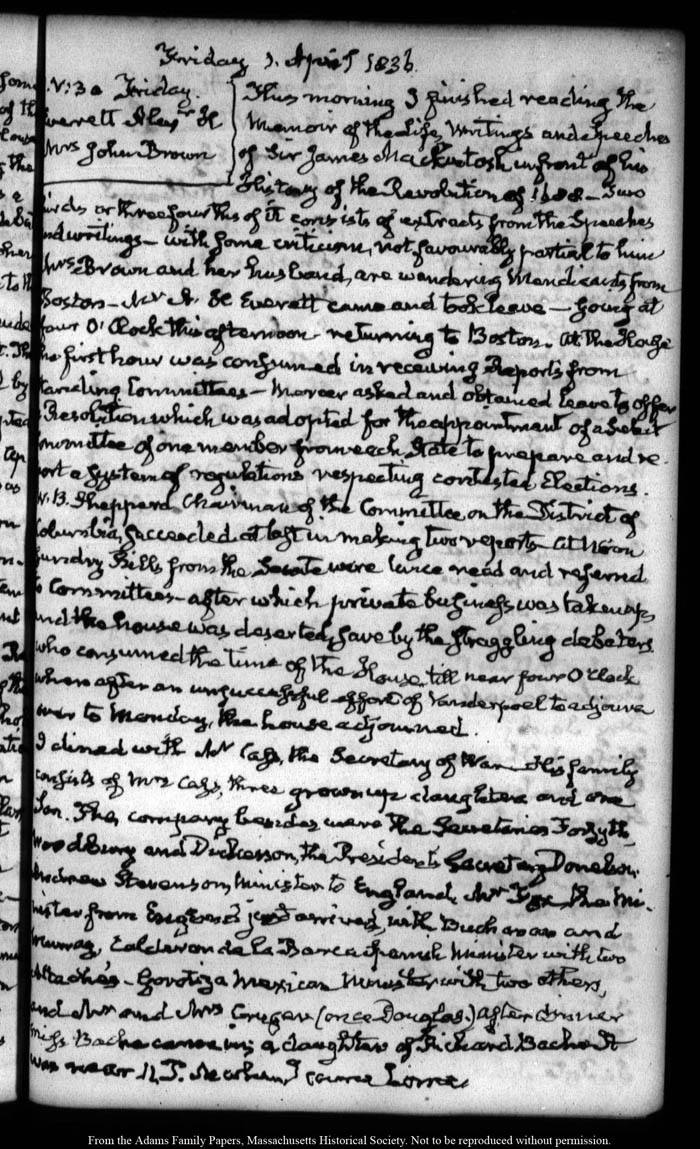 Friday 1. April 1836.
V:30 Friday.
Everett Alexr. H
Mrs John Brown
This morning I finished reading the
Memoir of the Life, Writings and Speeches
of Sir James Mackintosh in front of his
History of the Revolution of 1688 - Two
thirds or three fourths of it consists of extracts from the Speeches
and writings - with some criticism, not favourably partial to him
Mrs Brown and her husband, are wandering Mendicants from
Boston - Mr A. H Everett came and took leave - going at
four O'Clock this afternoon returning to Boston. At the House
the first hour was consumed in receiving Reports from
Standing Committees - Mercer asked and obtained leave to offer
a Resolution which was adopted for the appointment of a Select
Committee of one member from each State to prepare and re-
port a System of regulations respecting contested Elections.
W. B. Shepperd Chairman of the Committee on the District of
Columbia, succeeded at last in making two reports - At Noon
sundry Bills from the Senate were twice read and referred
to Committees - after which private business was taken up
and the house was deserted, save by the straggling debaters
who consumed the time of the House, till near four O'Clock
when after an unsuccessful effort of Vanderpoel to adjourn
over to Monday, the house adjourned.
I dined with Mr Cass, the Secretary of War - His family
consists of Mrs Cass, three grown up daughters and one
Son. The company besides were the Secretaries Forsyth,
Woodbury and Dickerson, the President's Secretary Donelson.
Andrew Stevenson, Minister to England, Mr Fox the Mi-
nister from England just arrived, with Buchanan and
Murray, Calderon de la Barca Spanish Minister with two
Attachés - Gorotiza Mexican Minister with two others,
and Mr and Mrs Cruger (once Douglas.) After dinner
Miss Bache came in, a daughter of Richard Bache It
was near 11 P. M when I came home